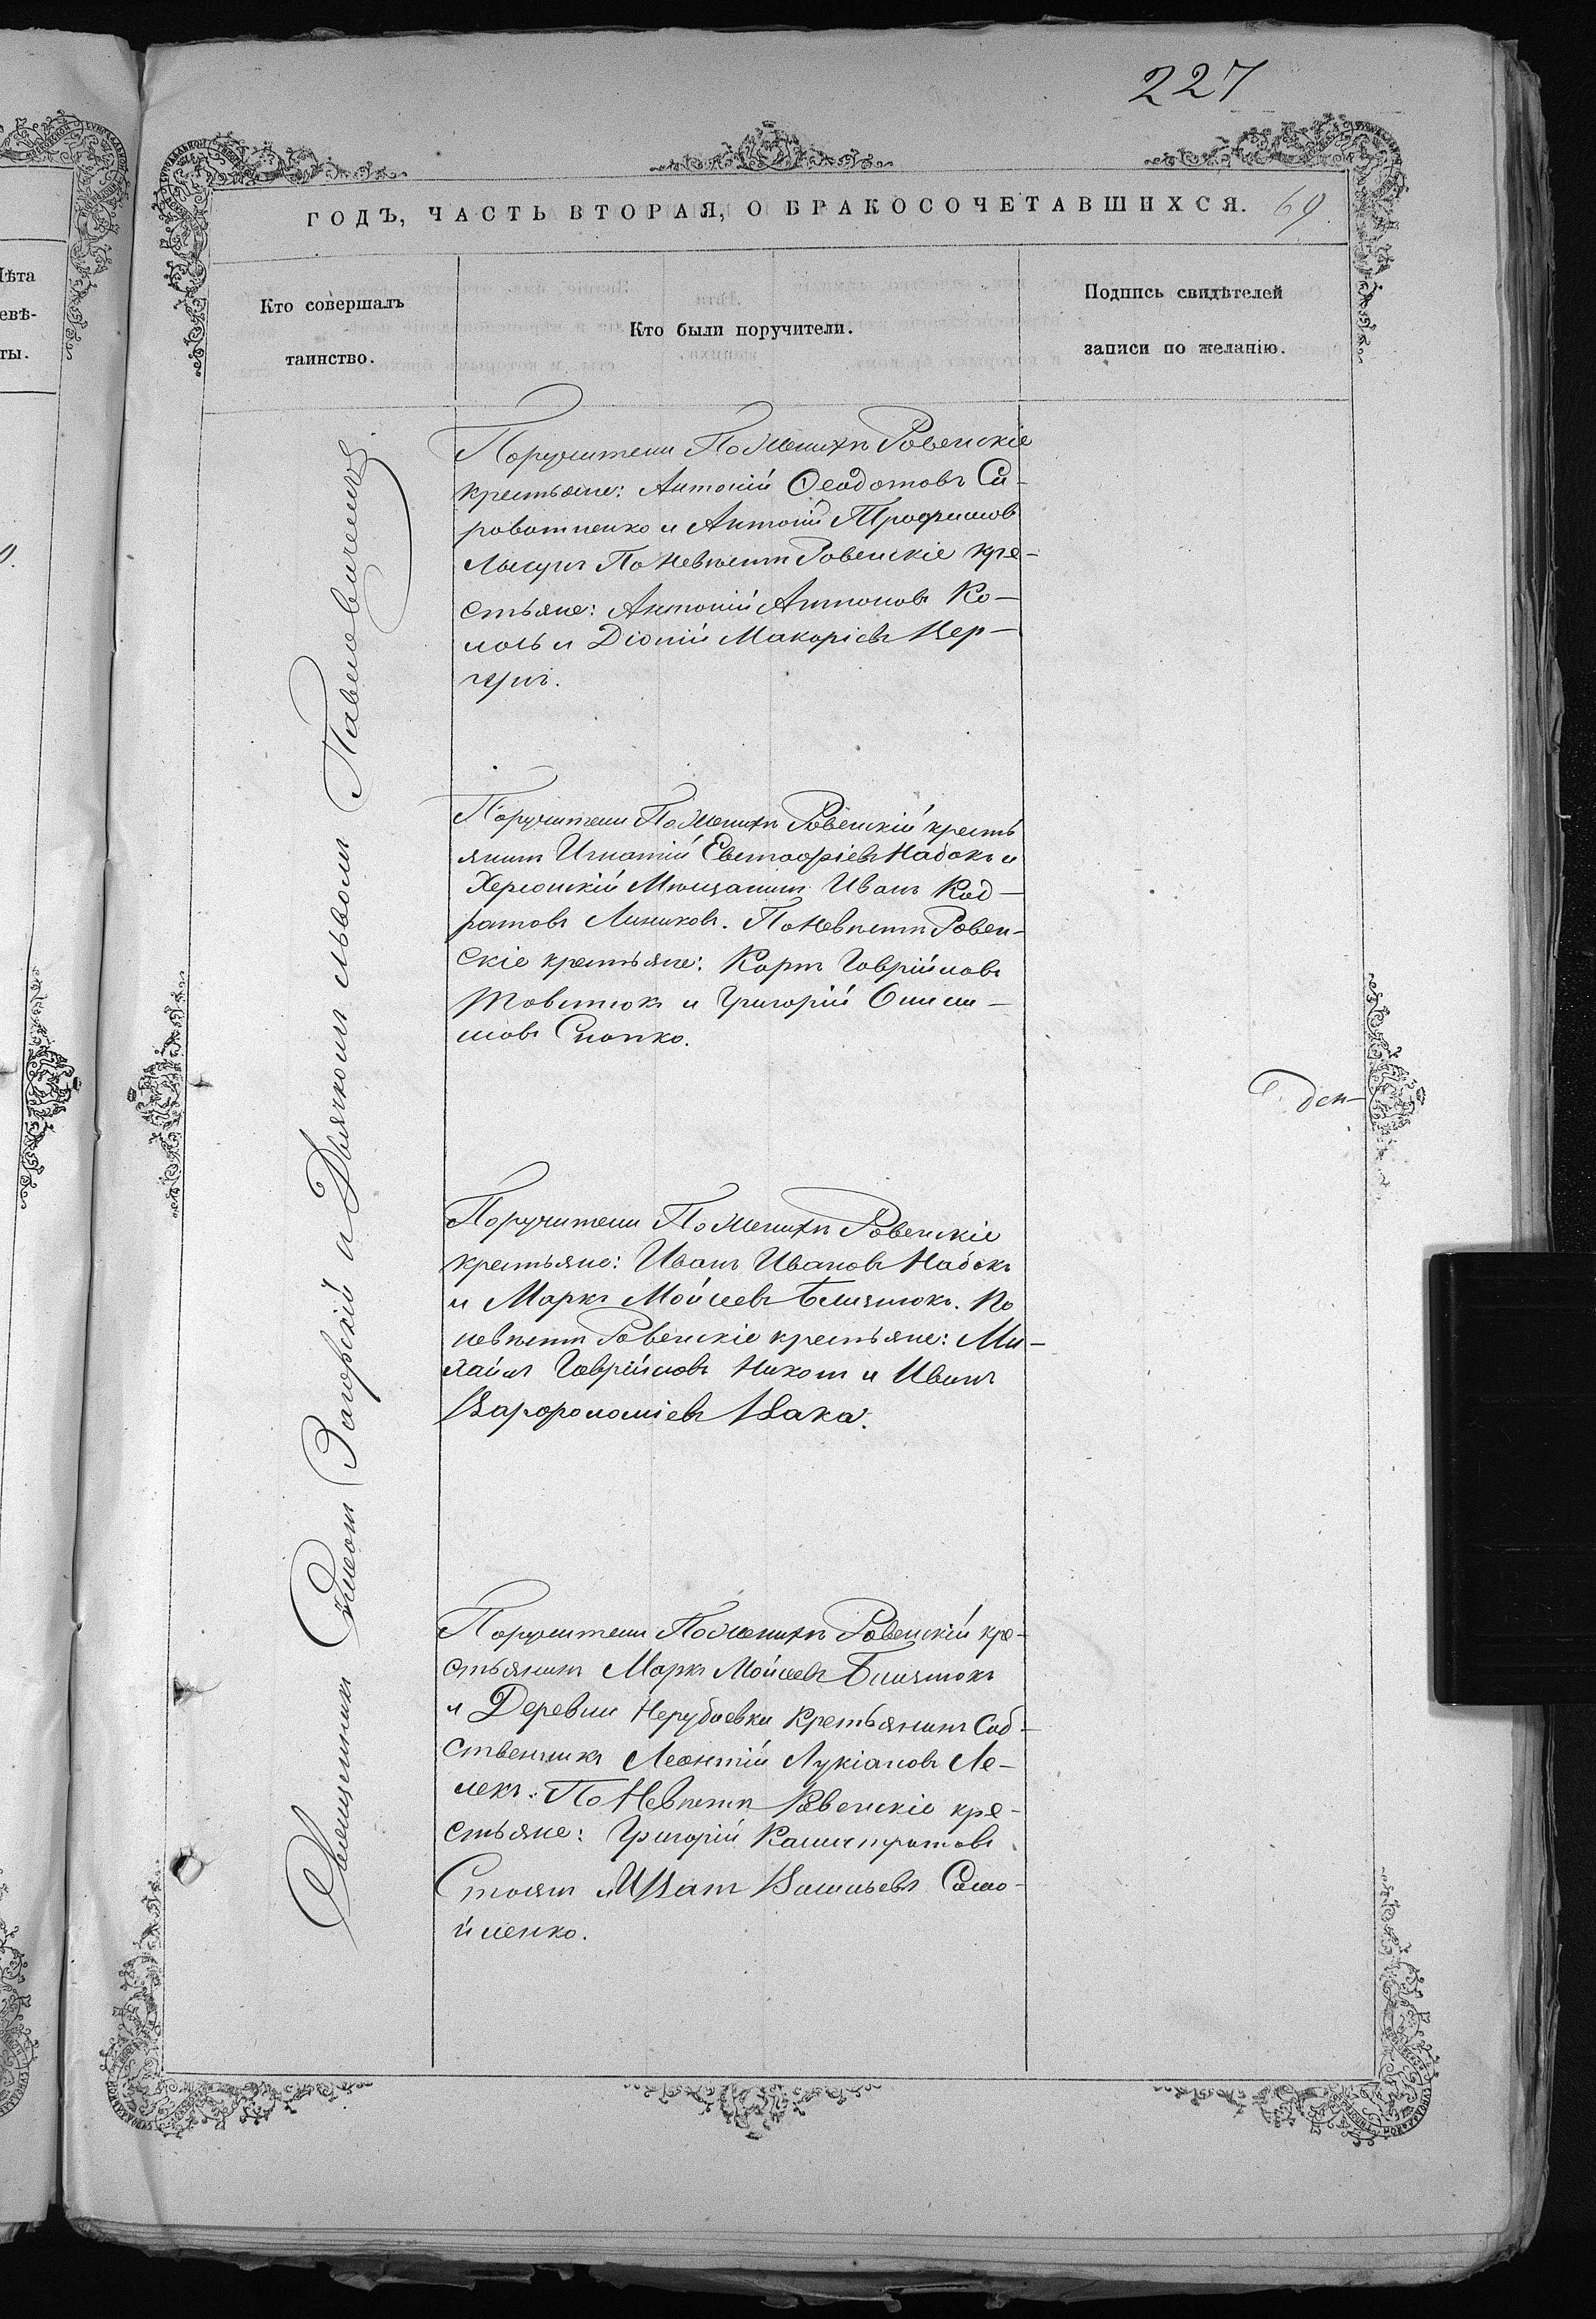 227
ГОДЪ, ЧАСТЬ ВТОРАЯ, О БРАКОСОЧЕТАВШИХСЯ. 69
Кто совершалъ
таинство.
Кто были поручители.
Подпись свидѣтелей
записи по желанію.
Священникъ Симеонъ Загорскій и Дьячкомъ Львомъ Павловичемъ
Поручители По Женихѣ Ровенскіе
крестьяне: Антоній Ѳеодотовъ Си-
роватненко и Антоній Трофимовъ
По Невѣстѣ Ровенскіе кре-
стьяне: Антоній Антоновъ Ко-
валь и Макаріевъ Вер-
гунъ.
Поручители По Женихѣ Ровенскій кресть
янинъ Игнатій Евстафіевъ Набокъ и
Херсонскій Мѣщанинъ Иванъ Код-
ратовъ Линиковъ. По Невѣстѣ Ровен-
скіе крестьяне: Карпъ Гаврійловъ
Товстюкъ и Григорій Онисм-
мовъ Слопко.
Поручители По Женихѣ Ровенскіе
крестьяне: Иванъ Ивановъ Набокъ
и Маркъ Мойсеевъ Близнюкъ. По
невѣстѣ Ровенскіе крестьяне: Ми-
хаилъ Гаврійловъ и Иванъ
Варфоломіевъ Кака.
Поручители По Женихѣ Ровенскій кре-
стьянинъ Маркъ Мойсеевъ Близнюкъ
и Деревни Нерубаевки Крестьянинъ Соб-
ственникъ Леонтій Лукіановъ Ле-
лекъ. По Невѣстѣ Ровенскіе кре-
стьяне: Григорій Калистратовъ
Стоянъ и Иванъ Васильевъ Само-
йленко.